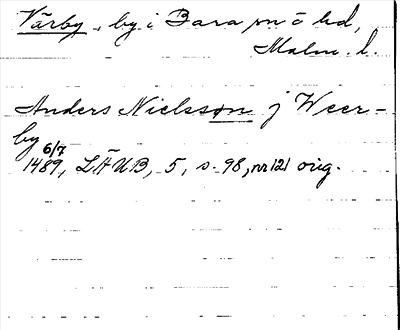 Värby, by i Bara sn o hd,
Malm. l.
Anders Nielsson j Weer-
by
6/7
1489, LÄUB, 5, s. 98, nr 121 orig.